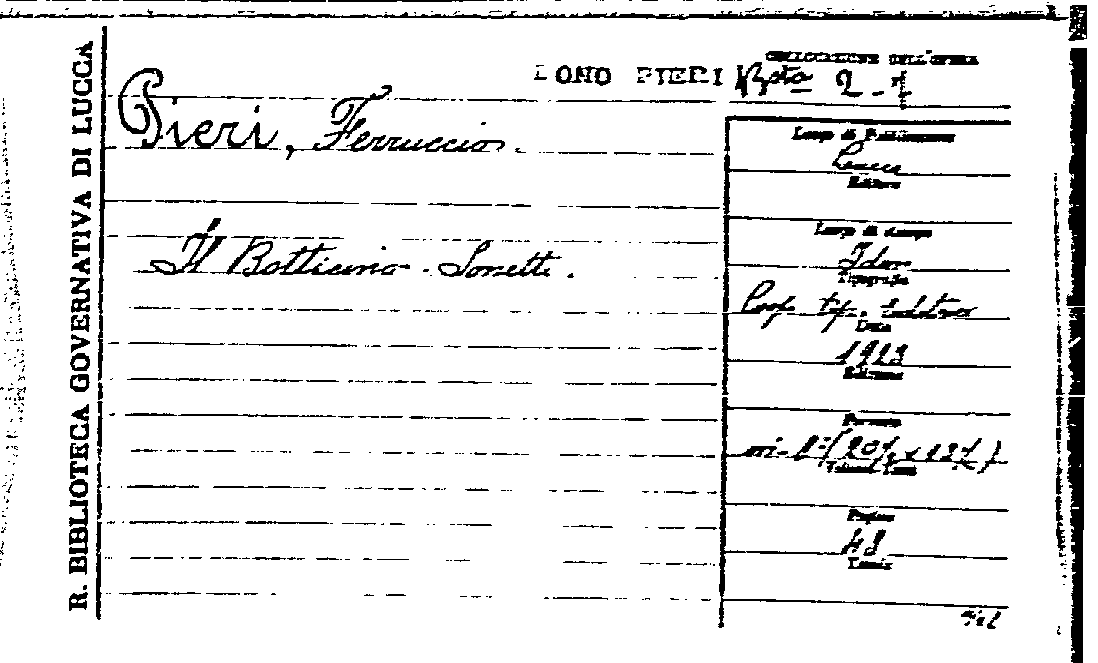 R. BIBLIOTECA GOVERNATIVA DI LUCCA
DONO PIERI
COLLOCAZIONE DELL'OPERA
Bta 2-1
Pieri, Ferruccio.
Il Botticino. Sonetti.
Luogo di Pubblicazione
Lucca
Editore
Luogo di stampa
Idem
Tipografia
Coop. tip. editrice
Data
1913
Edizione
Formato
in-8°
Volumi
Pagine
48
Tavole